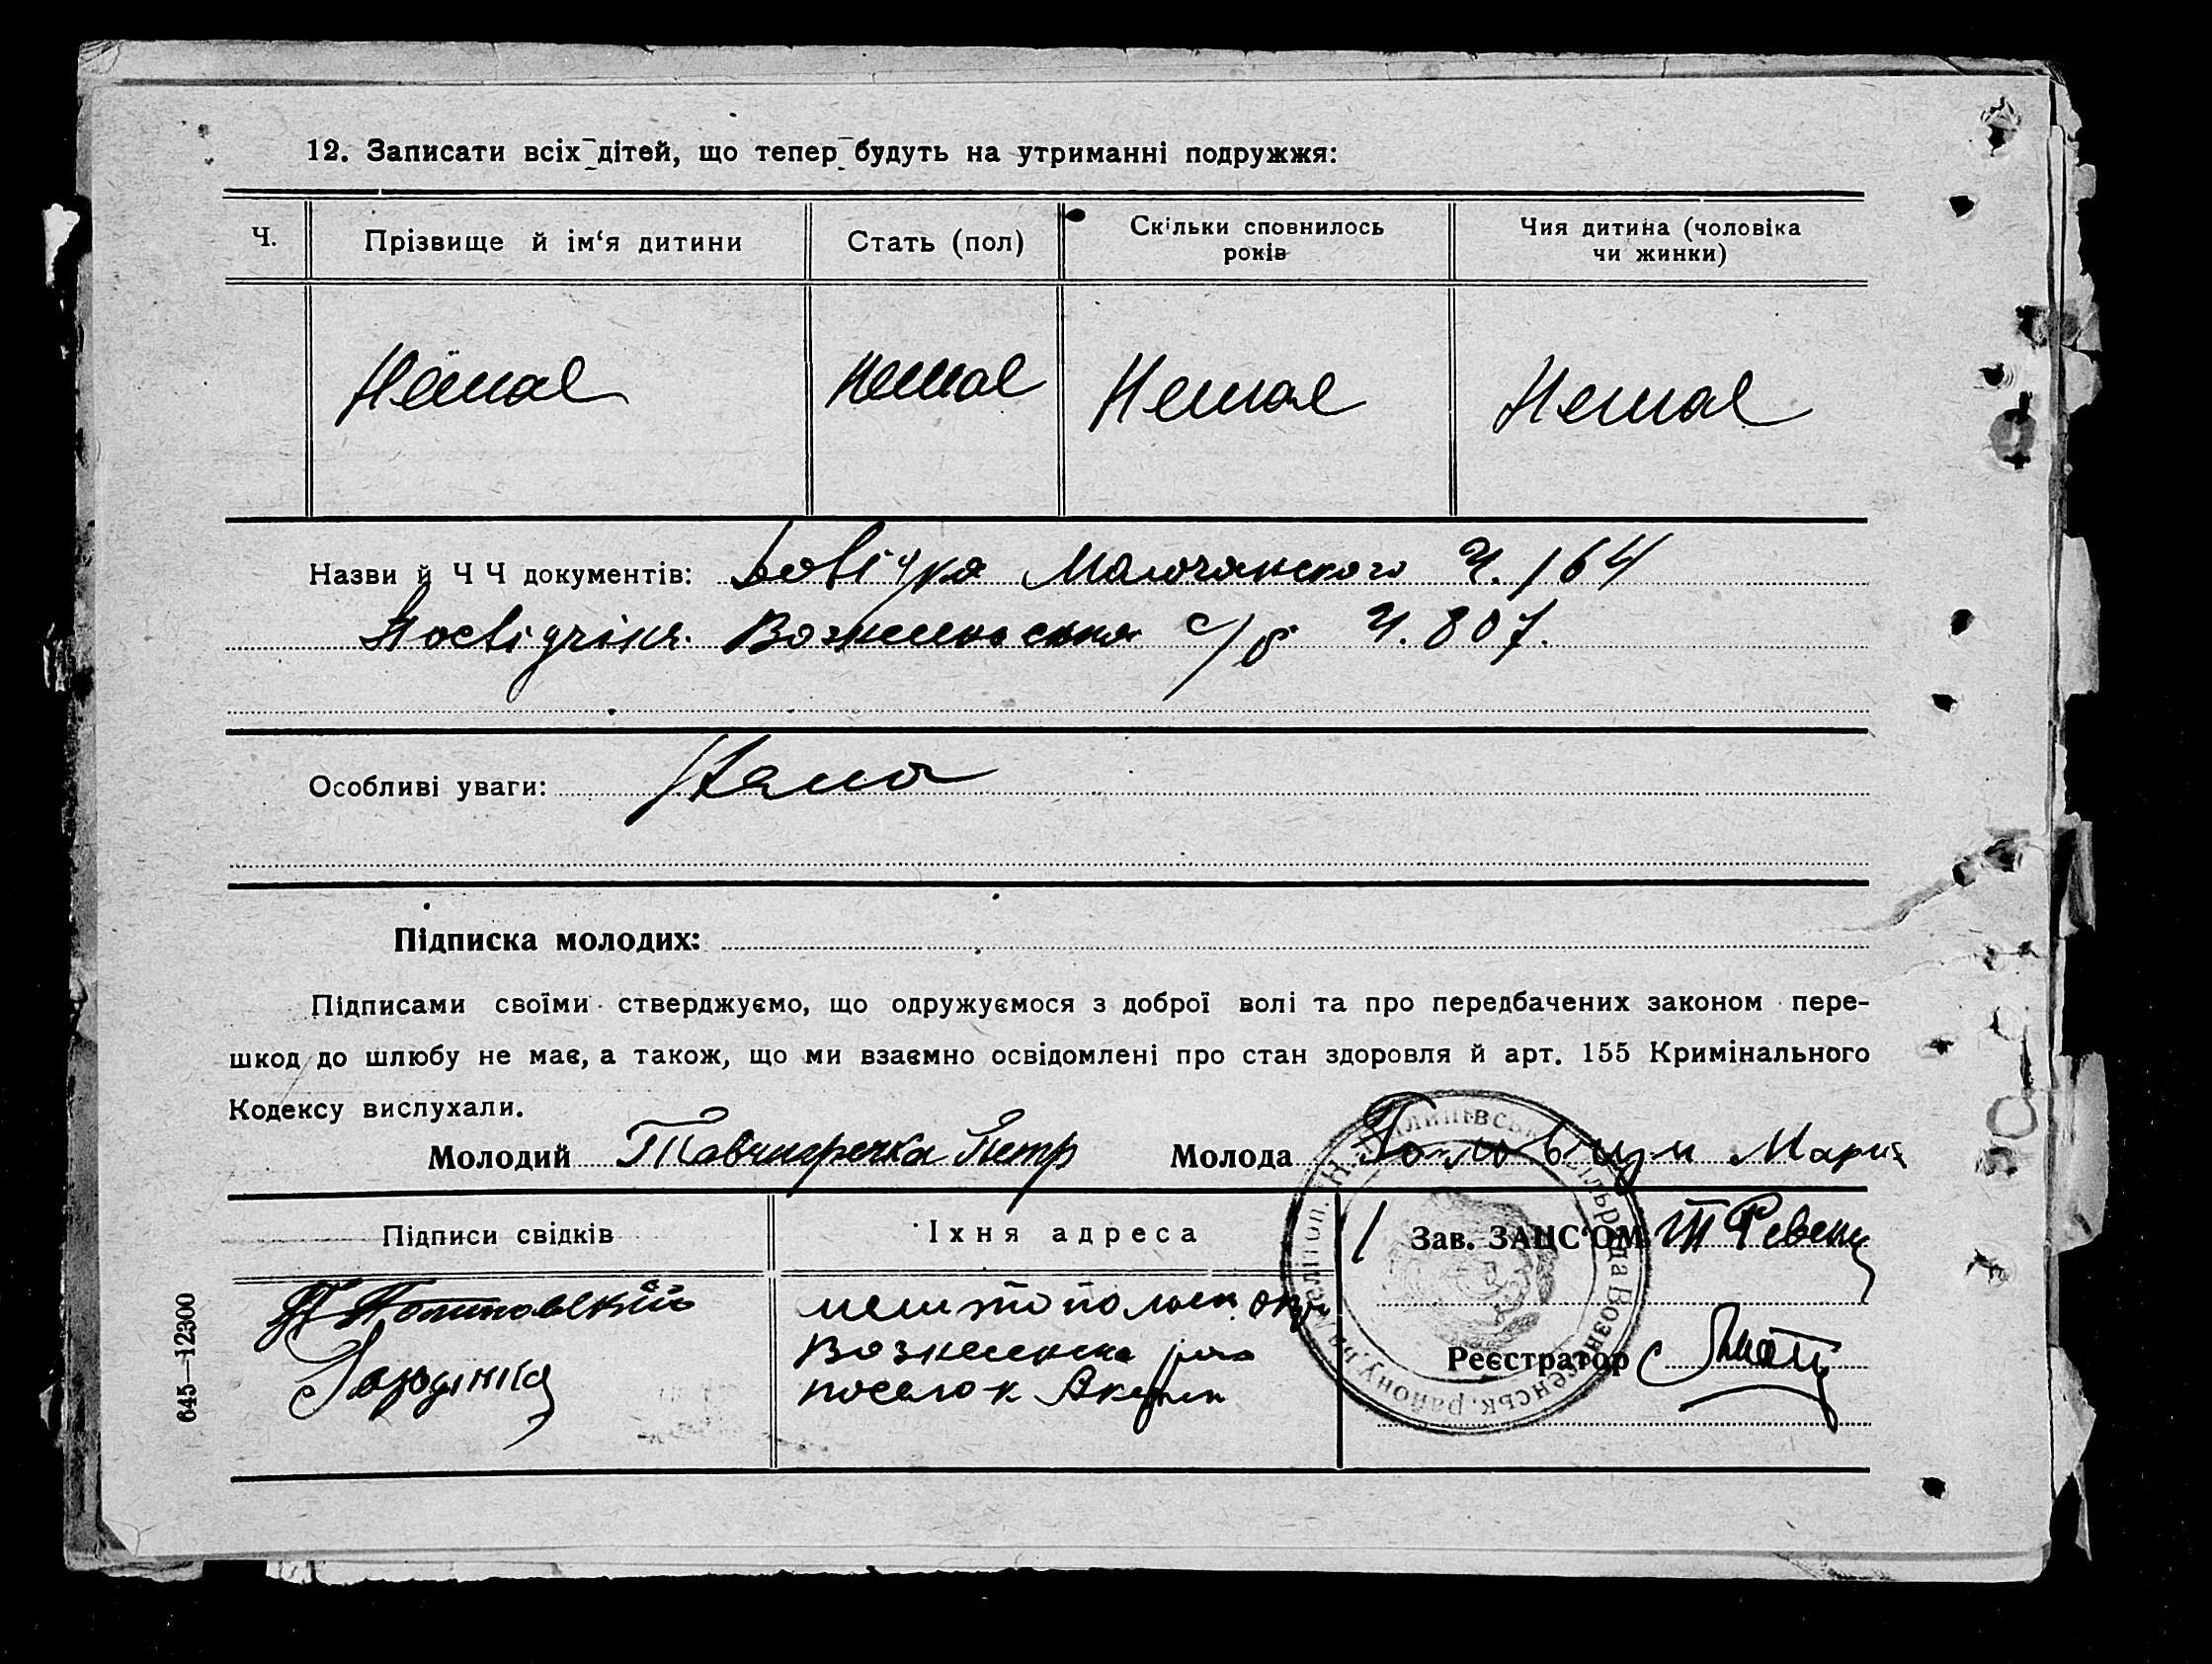 12. Записати всіх дітей, що тепер будуть на утриманні подружжя:
Ч. Прізвище й ім‘я дитини Стать (пол) Скільки сповнилось років Чия дитина (чоловіка чи жинки)
Немає Немає Немає Немає
Назви й Ч Ч документів: Довічка Молочанского Ч. 164
Посвідчіня Вознесенська с/б Ч. 807.
Особливі уваги: Нема
Підписка молодих:
Підписами своїми стверджуємо, що одружуємося з доброї волі та про передбачених законом пере-
шкод до шлюбу не має, а також, що ми взаємно освідомлені про стан здоровля й арт. 155 Кримінального
Кодексу вислухали.
Молодий Тавчиречка Петр Молода Мария
Підписи свідків Їхня адреса Зав. ЗАПС‘ОМ
мелитопольск окр
Вознесенск
поселок
Реєстратор
645—12300